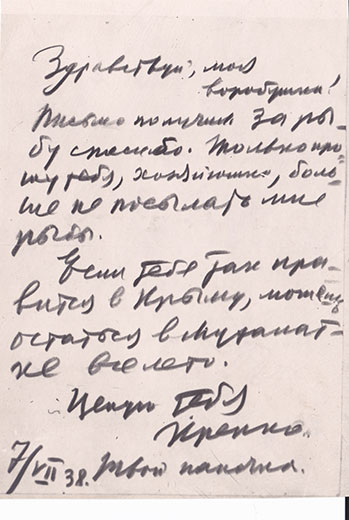 Здравствуй, моя
воробушка!
Письмо получил. За ры-
бу спасибо. Только про-
шу тебя, хозяюшка, боль-
ше не посылать мне
рыбы.
Если тебе так нра-
вится в Крыму, можешь
остаться в Мухалат-
ке все лето.
Целую тебя
крепко.
7/VII 38. Твой папочка.